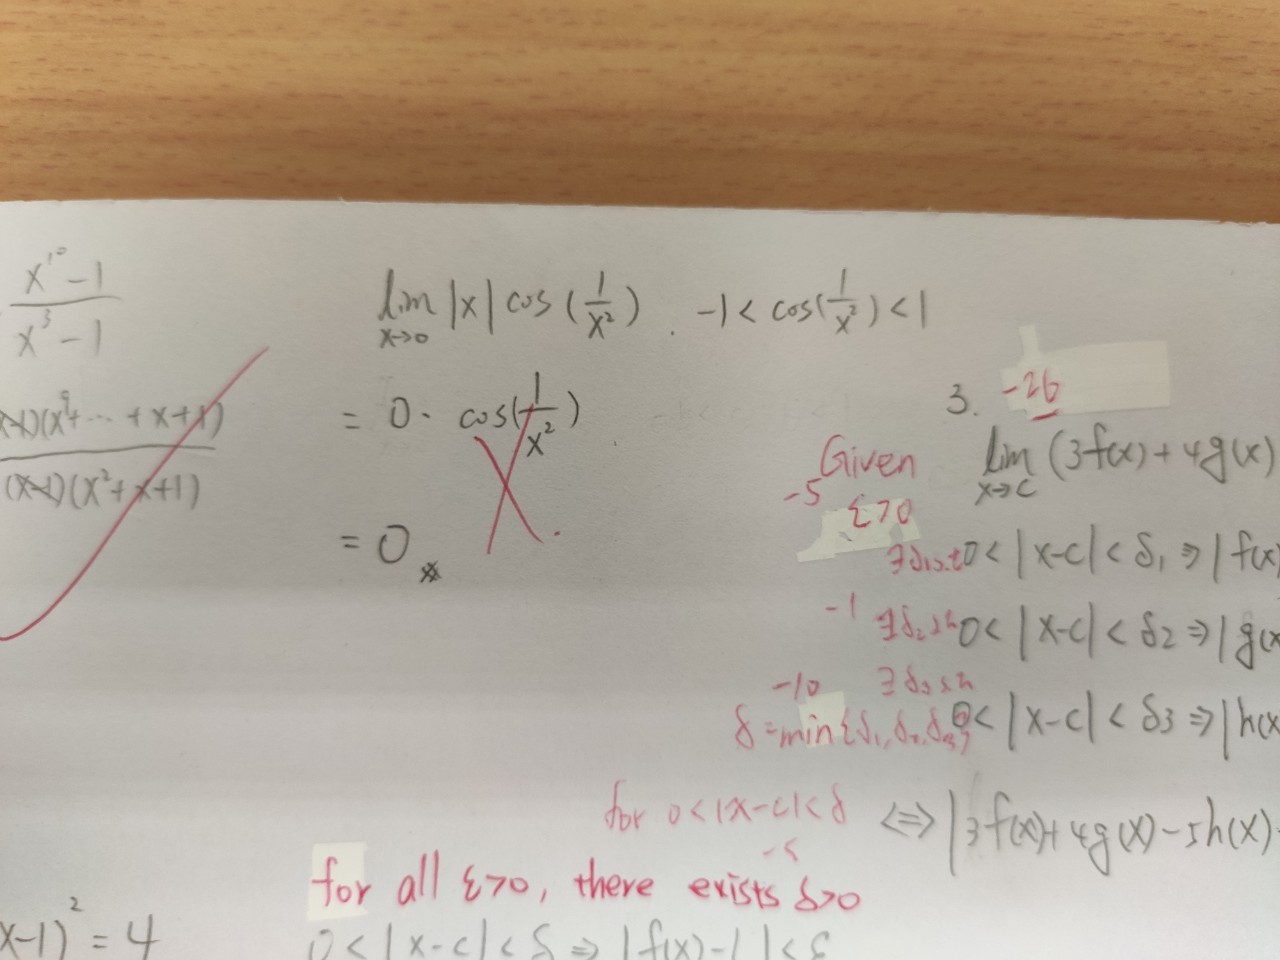 x¹⁰-1
x³-1
(x-1)(x⁹+⋯+x+1)
(x-1)(x²+x+1)
lim x→0 |x| cos(1/x²) . -1 < cos(1/x²) < 1
= 0 · cos(1/x²)
= 0
3. -26
Given lim x→c (3f(x)+4g(x)
-5 ε>0
∃δ₁ s.t 0<|x-c|<δ₁ ⇒ |f(x)
-1 ∃δ₂ s.t 0<|x-c|<δ₂ ⇒ |g(x
-10 ∃δ₃ s.t
δ=min{δ₁,δ₂,δ₃} 0<|x-c|<δ₃ ⇒ |h(x
for 0<|x-c|<δ ⇔ |3f(x)+4g(x)-5h(x)-
-5
for all ε>0, there exists δ>0
x-1)²=4
0<|x-c|<δ ⇒ |f(x)-L|<ε